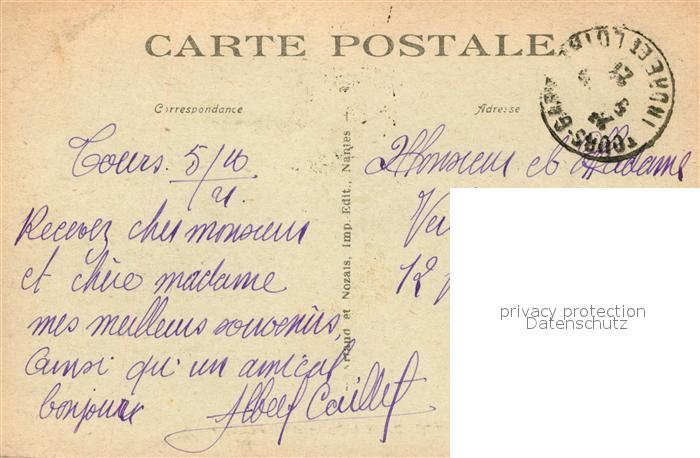 CARTE POSTALE
Correspondance
Adresse
TOURS-GARE
INDRE ET LOIRE
Tours. 5/10
21.
Recevez cher monsieur
et chère madame
mes meilleurs souvenirs,
Ainsi qu'un amical
bonjour
Albert Caillet
et Nozais, Imp. Edit., Nantes
Monsieur et Madame
12
privacy protection
Datenschutz